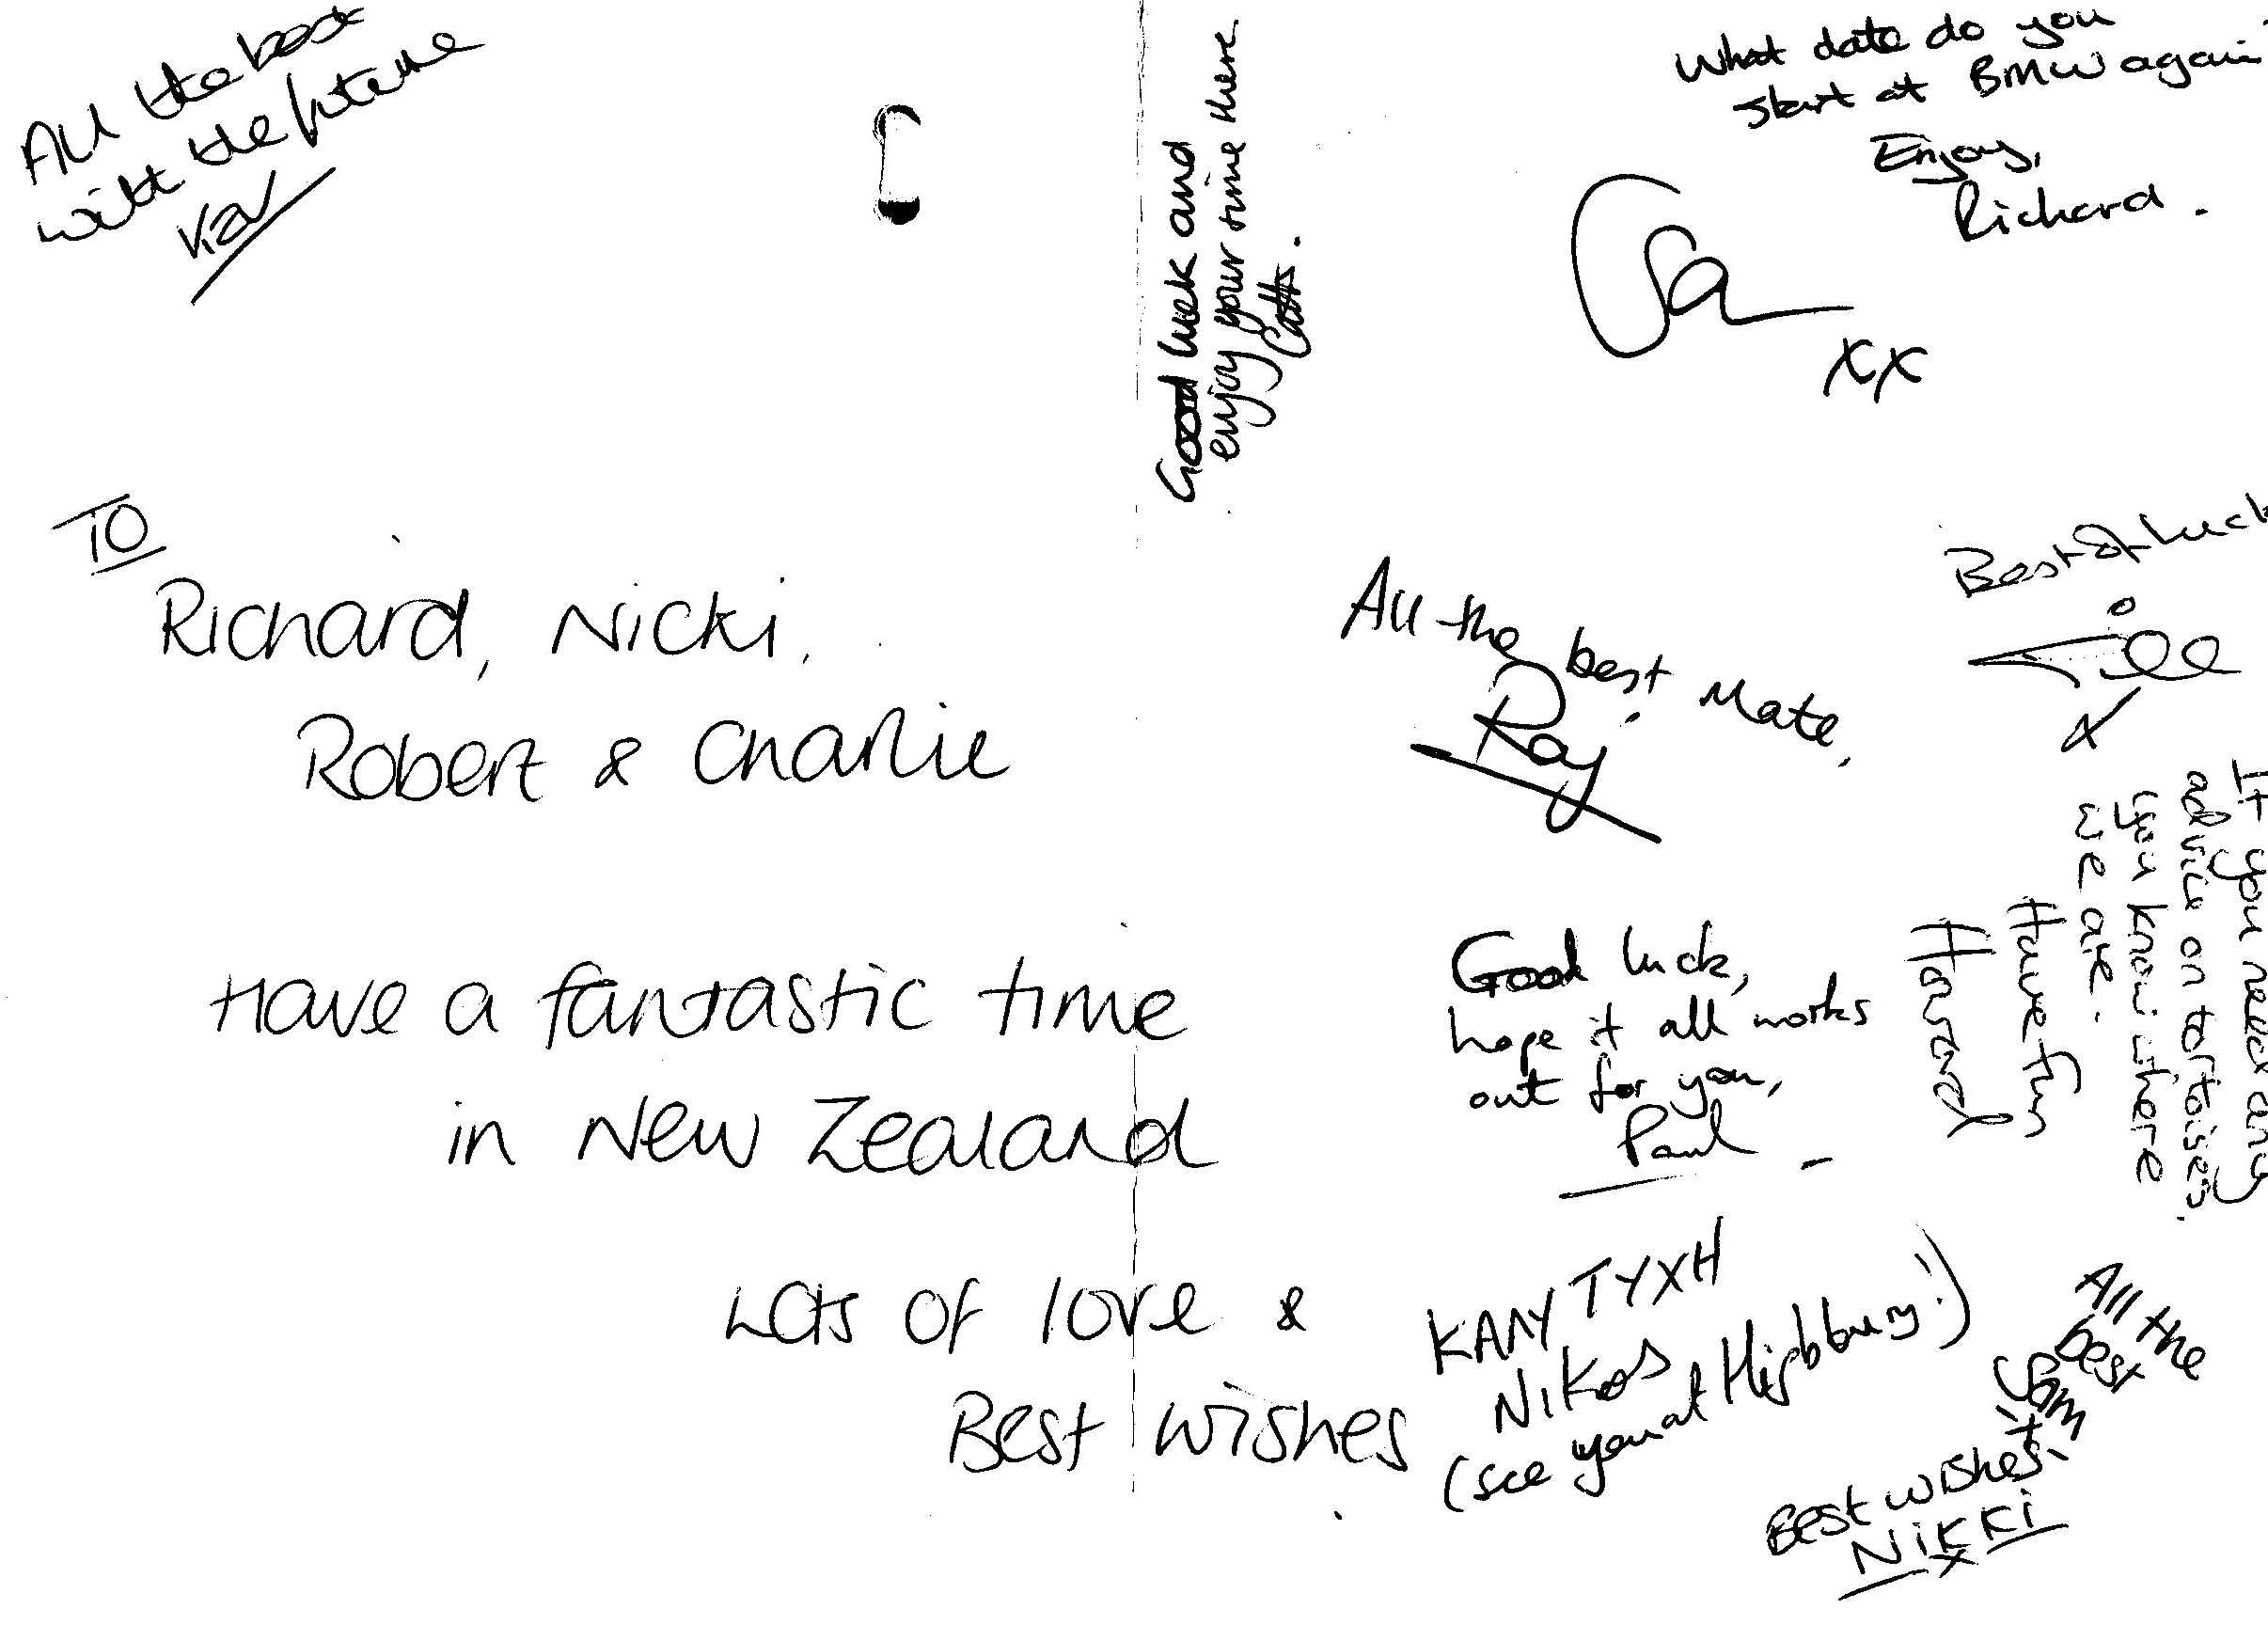 All the best
with the future
Kav
Good luck and
enjoy your time there.
What date do you
start at BMW again
Enjoy,
Richard.
xx
To
Richard, Nicki,
Robert & Charlie
Have a fantastic time
in New Zealand
Lots of love &
Best wishes
All the best mate,
Ray
Best of luck
Jill
x
If you need any
advice on tortoises
you know where
we are.
Have fun
Howard
Good luck,
hope it all works
out for you,
Paul
ΚΑΛΗ ΤΥΧΗ
ΝΙΚΟΣ
(see you at Highbury!)
All the
best
Sam
Best wishes
Nikki
x